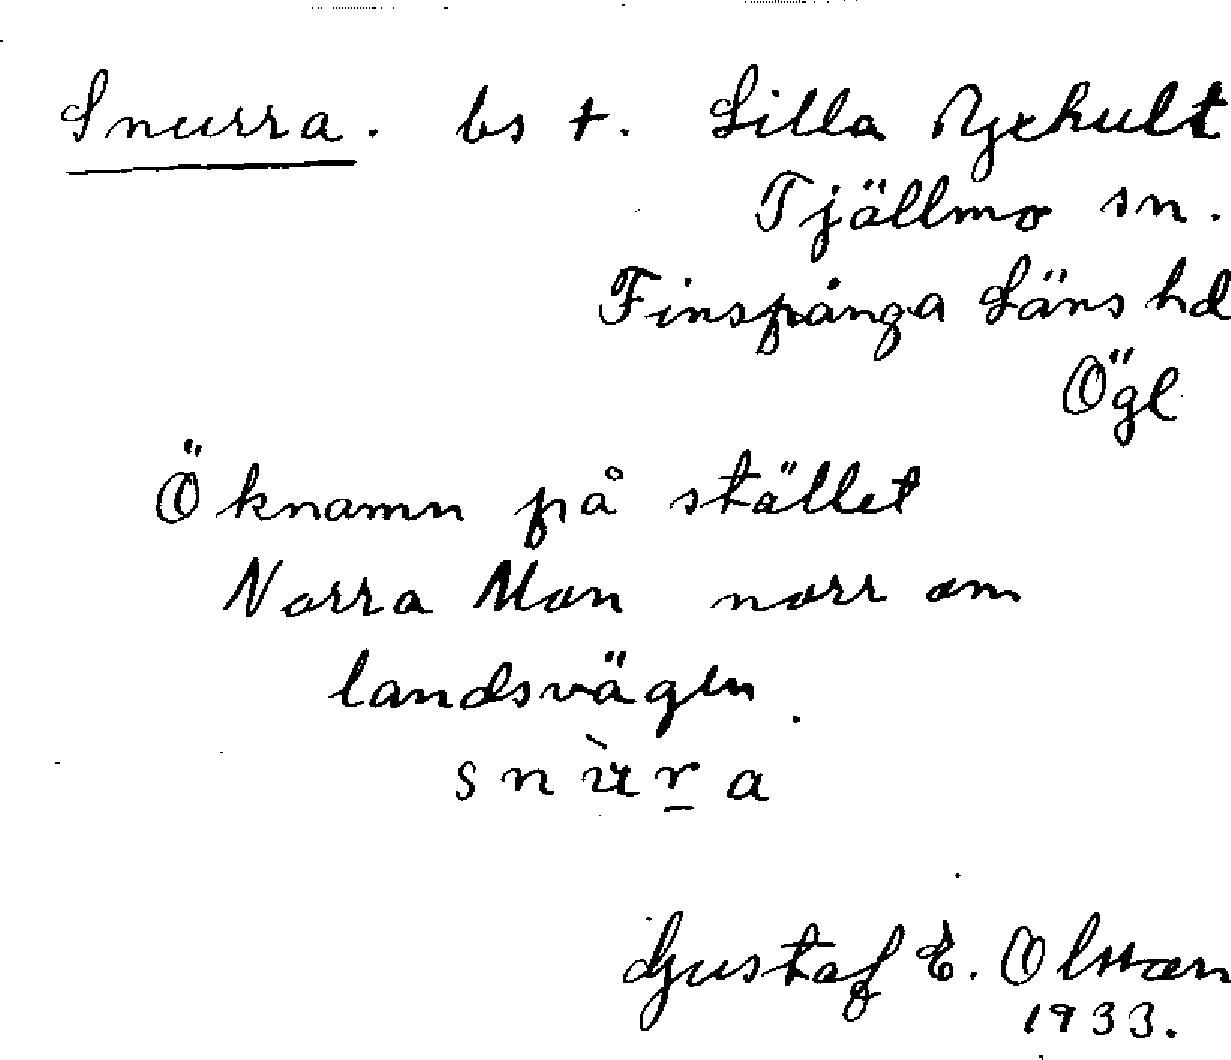 Snurra. bs t. Lilla Yxhult
Tjällmo sn.
Finspånga Läns hd
Ögl
Öknamn på stället
Norra Mon norr om
landsvägen.
snùra
Gustaf E. Olsson
1933.